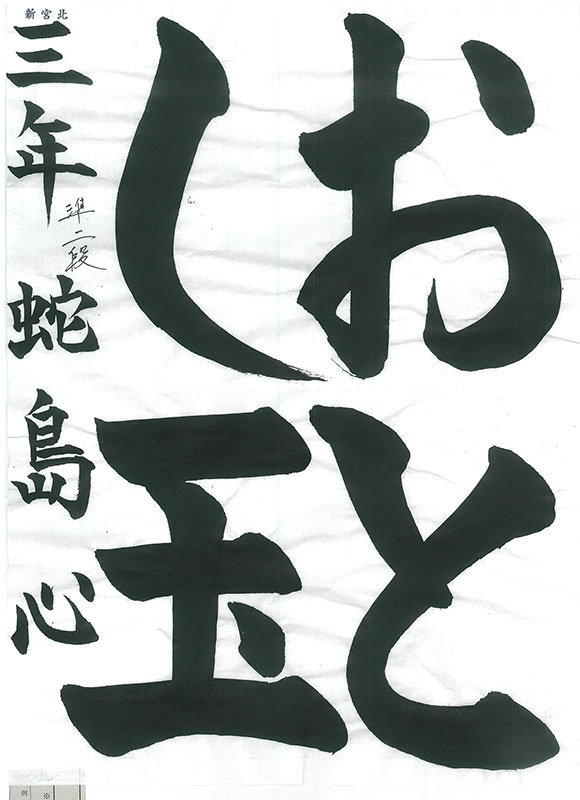 おと
し玉
新宮北
三年 蛇島心
準二段
例
※